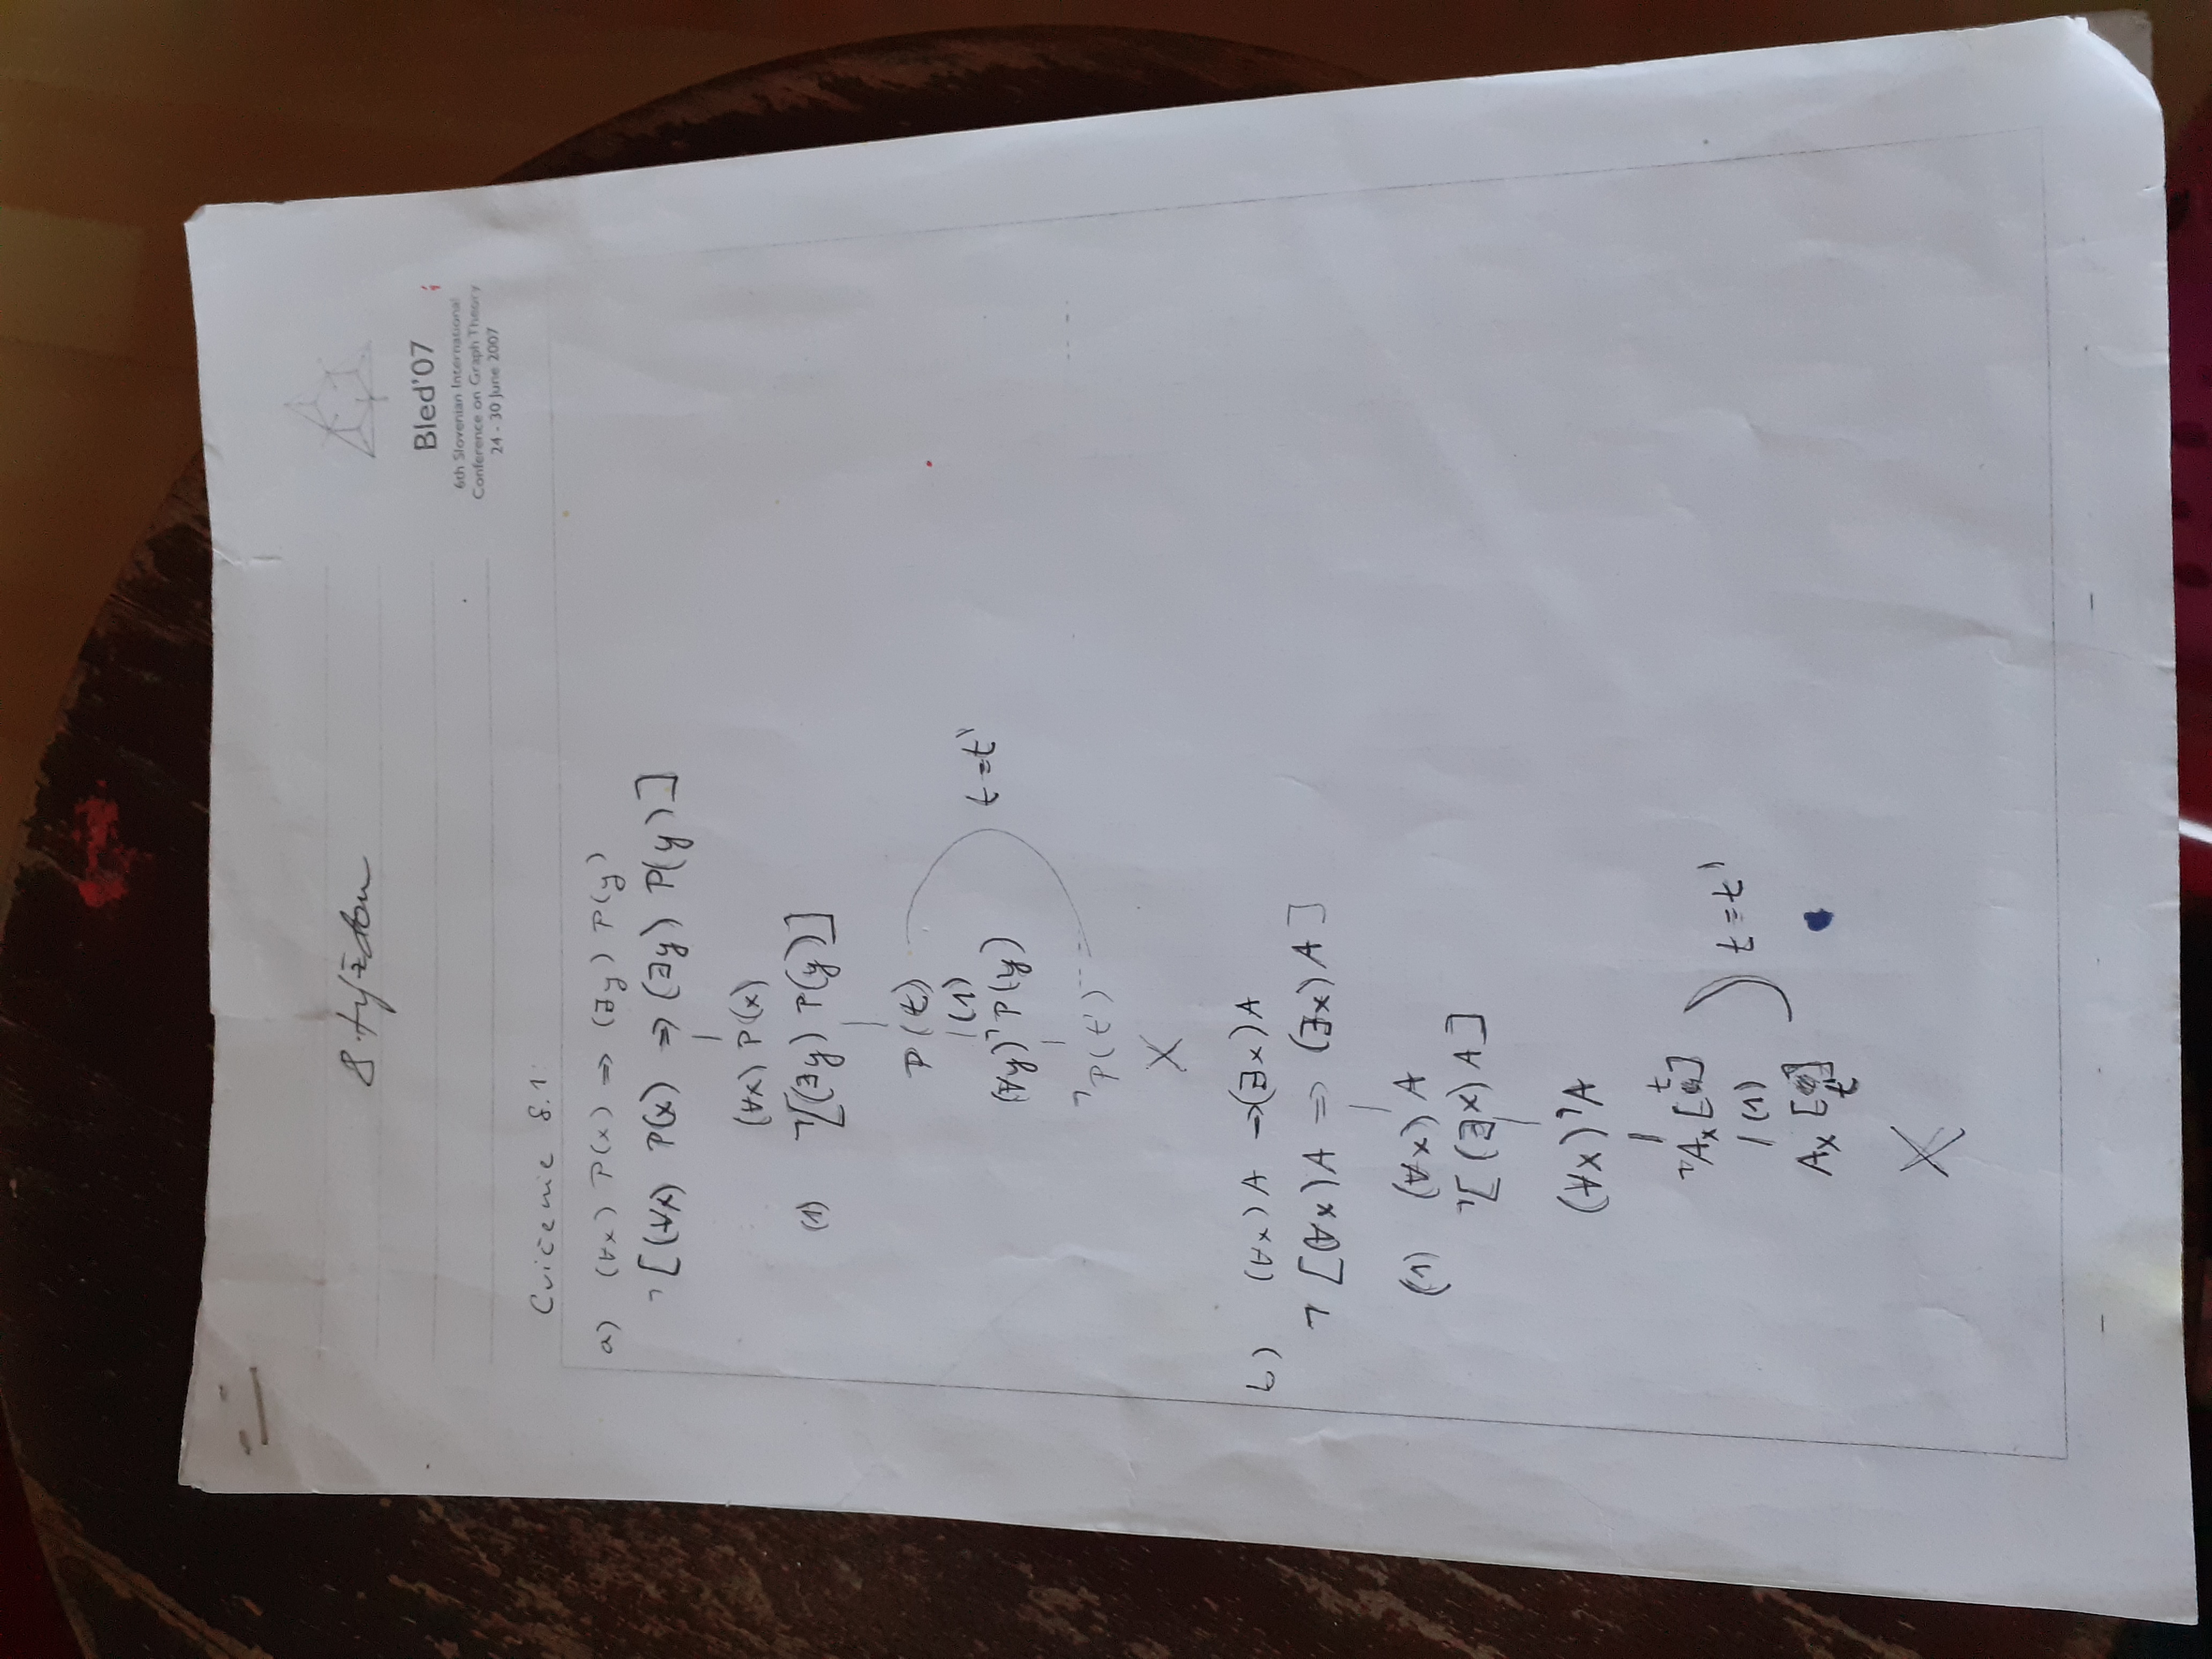 8. týždeň
Bled'07
6th Slovenian International
Conference on Graph Theory
24 - 30 June 2007
Cvičenie 8.1:
a) (∀x) P(x) ⇒ (∃y) P(y)
¬[(∀x) P(x) ⇒ (∃y) P(y)]
(∀x) P(x)
(1) ¬[(∃y) P(y)]
P(t)
(1)
(∀y)¬P(y)
t=t'
¬P(t')
X
b) (∀x)A ⇒(∃x)A
¬[(∀x)A ⇒ (∃x)A]
(1) (∀x) A
¬[(∃x)A]
(∀x)¬A
¬Aₓ[t]
(1) t=t'
Aₓ[t']
X